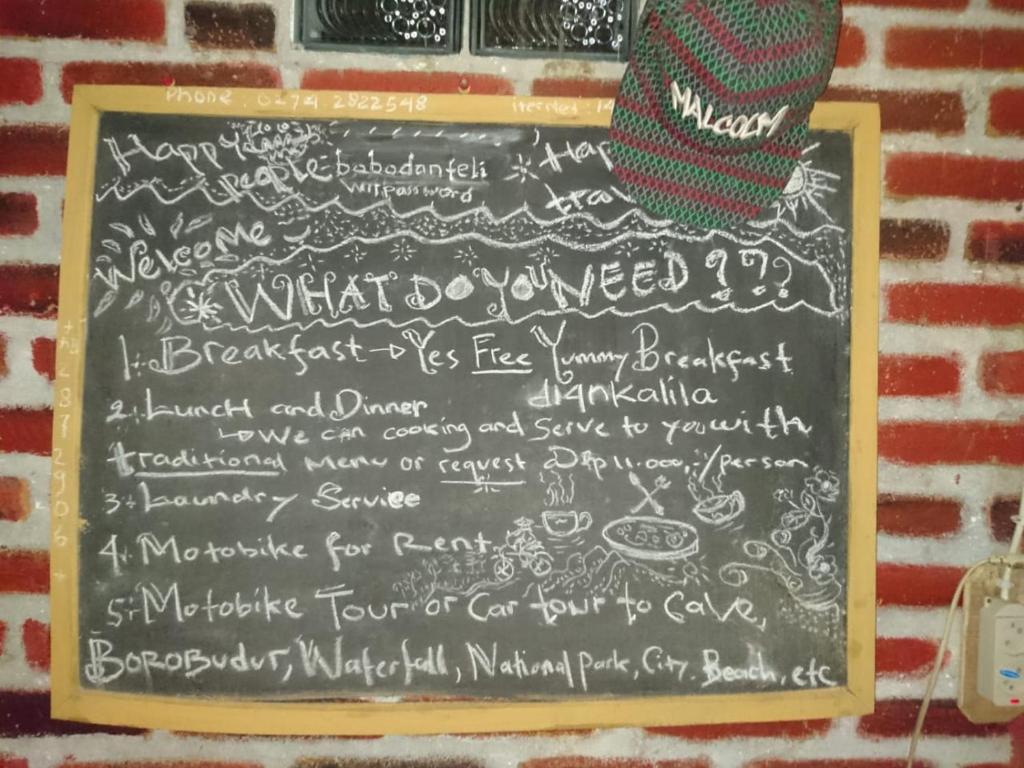 Phone : 0274. 2922548
MALCOLM
Happy people
babodanfeli
wifi password
Welcome
WHAT DO YOU NEED ???
1. Breakfast → Yes Free Yummy Breakfast
di4nkalila
2. Lunch and Dinner
↳ We can cooking and serve to you with
traditional menu or request @ Rp 11.000,-/person
3. Laundry Service
4. Motobike for Rent
5. Motobike Tour or Car tour to Cave,
Borobudur, Waterfall, National Park, City, Beach, etc